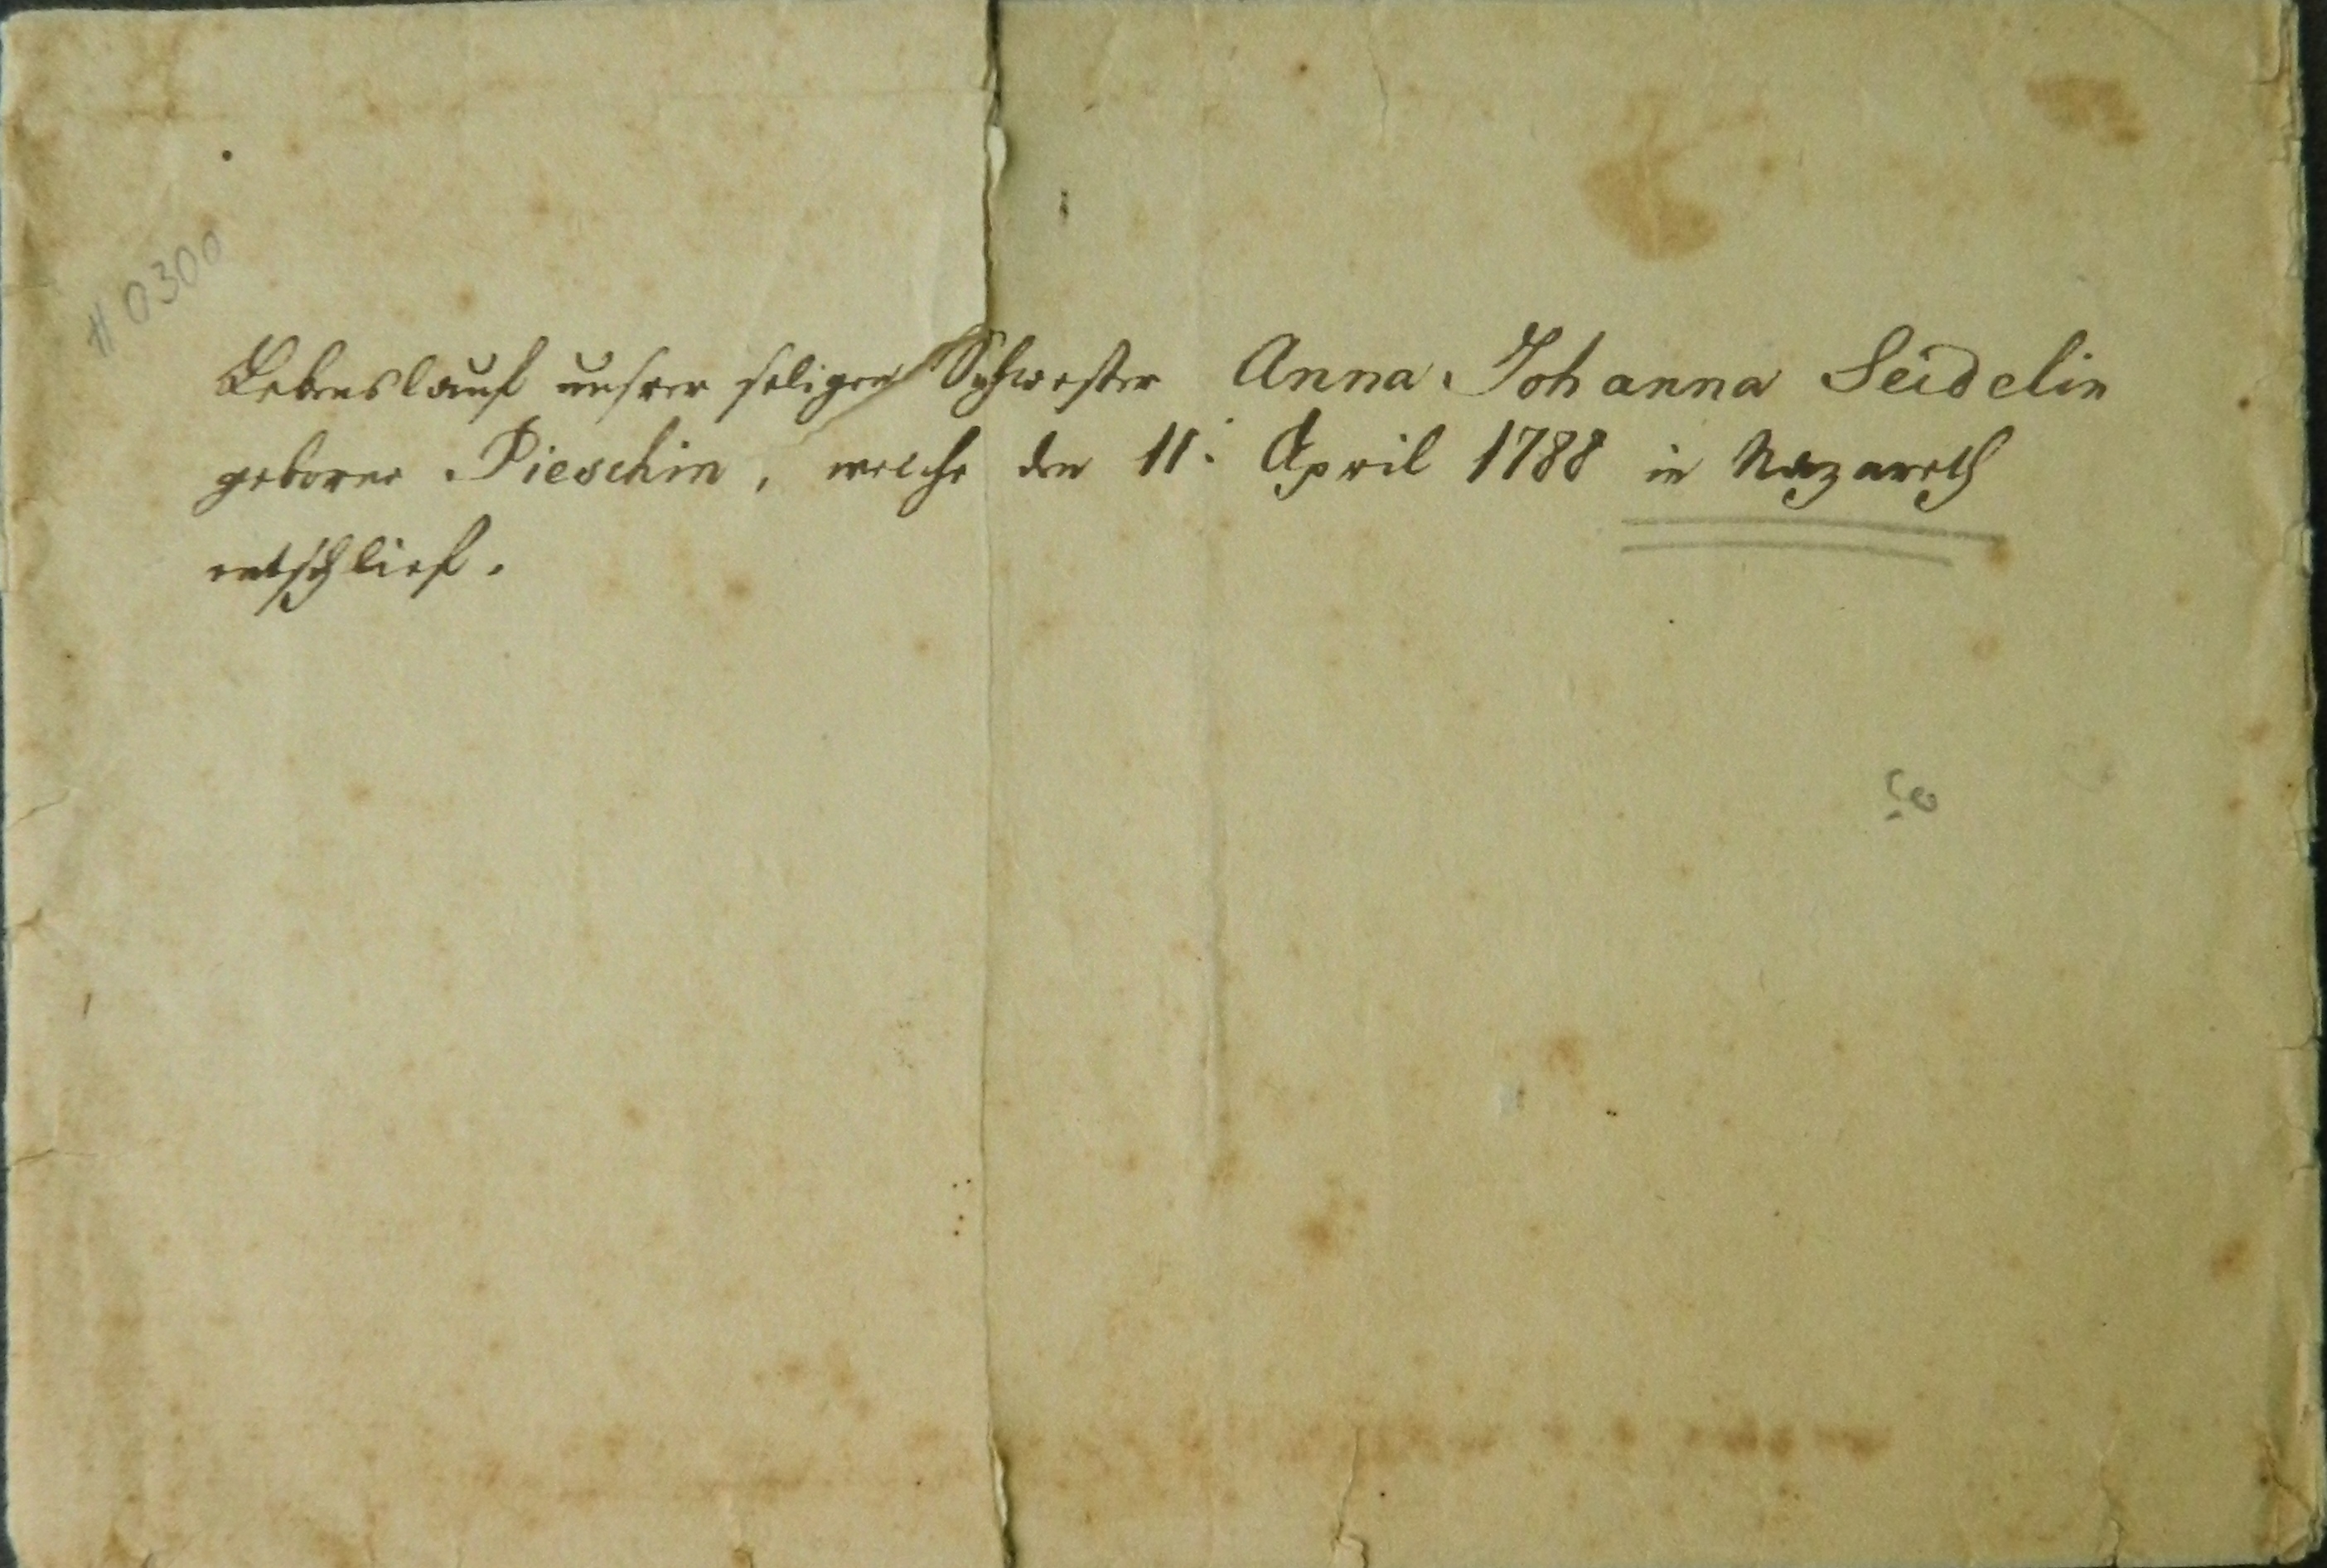 # 0300
Lebenslauf unsrer seligen Schwester Anna Johanna Seidelin
geborne Pieschin, welche den 11. April 1788 in Nazareth
entschlief.